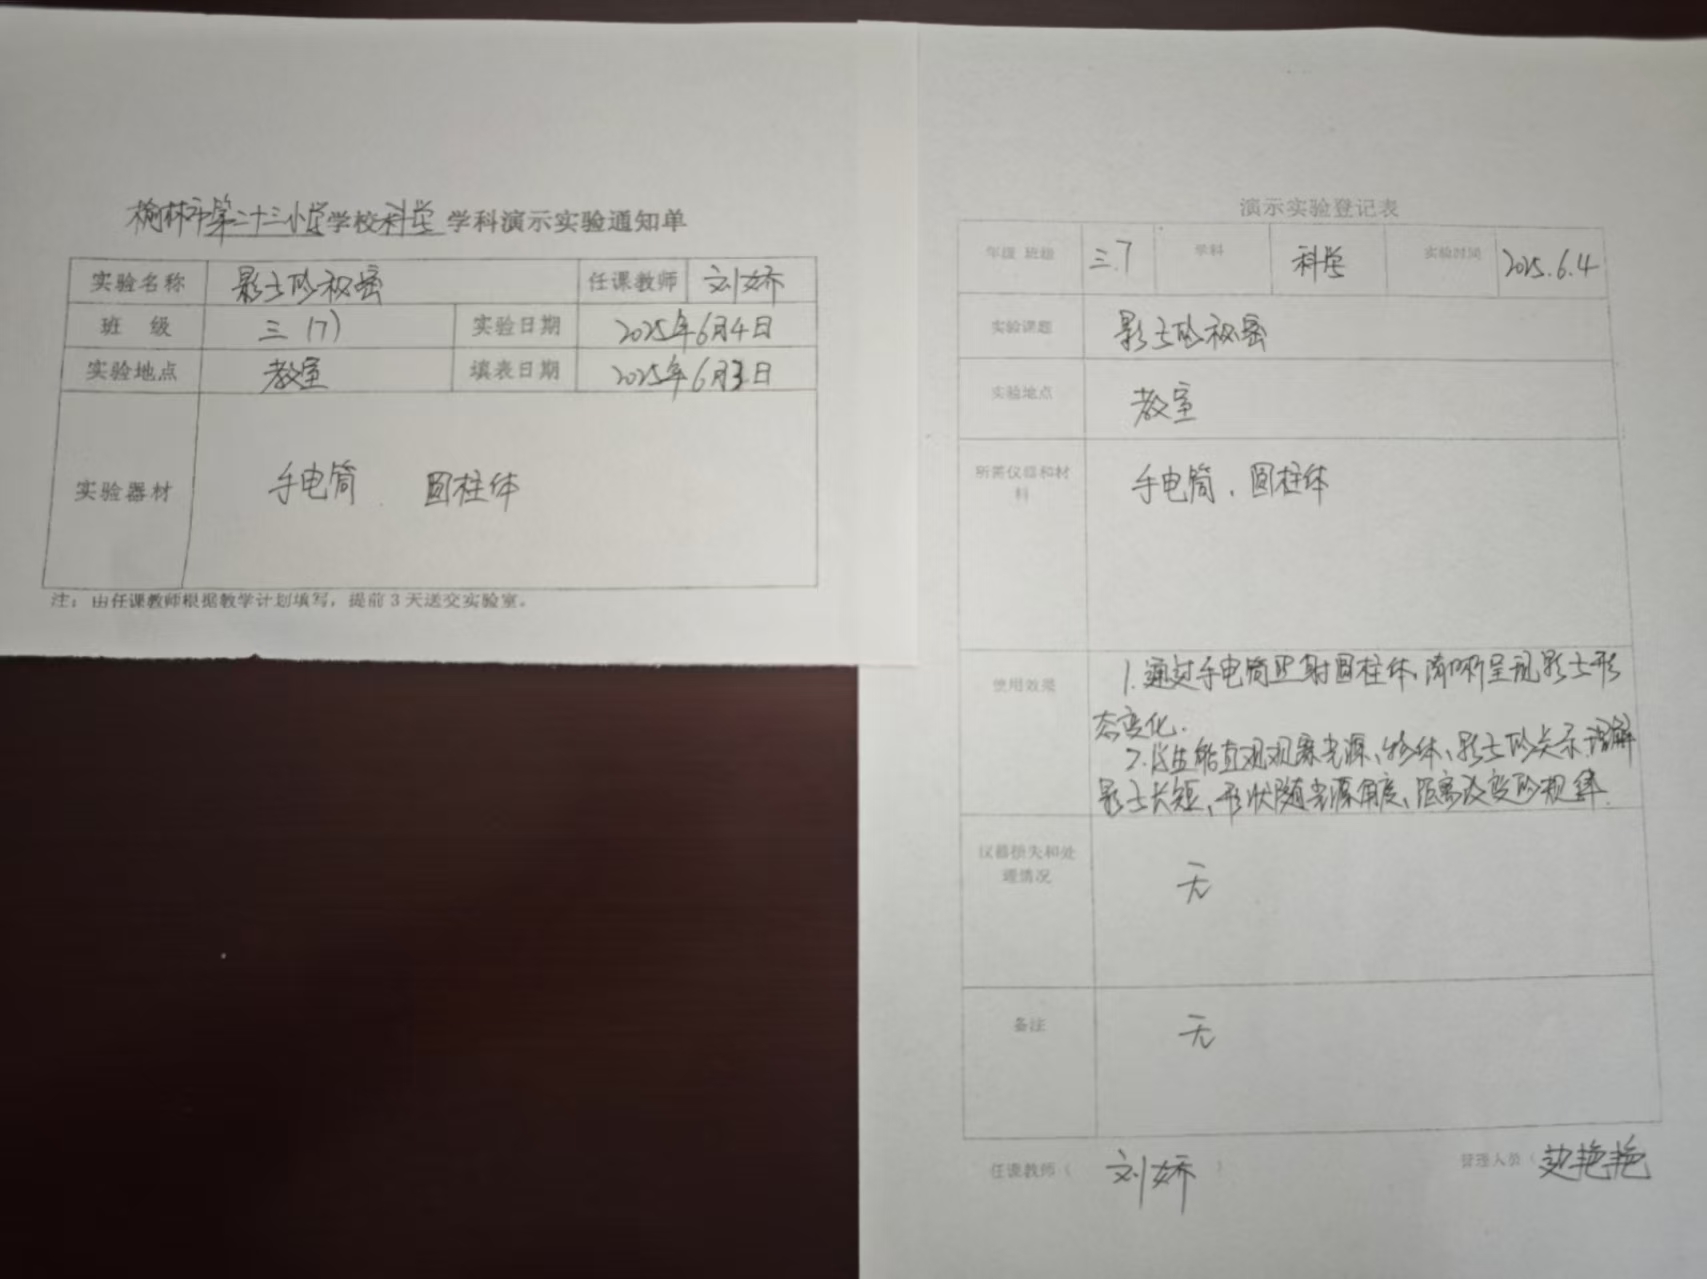 榆林市第二十三小学学校科学学科演示实验通知单
实验名称 影子的秘密 任课教师 刘娇
班 级 三(7) 实验日期 2025年6月4日
实验地点 教室 填表日期 2025年6月3日
实验器材 手电筒 圆柱体
注：由任课教师根据教学计划填写，提前3天送交实验室。
演示实验登记表
年级 班级 三.7 学科 科学 实验时间 2025.6.4
实验课题 影子的秘密
实验地点 教室
所需仪器和材
料
手电筒、圆柱体
使用效果
1.通过手电筒照射圆柱体,清晰呈现影子形
态变化.
2.学生能直观观察光源、物体、影子的关系,理解
影子长短、形状随光源角度、距离改变的规律.
仪器损失和处
理情况
无
备注 无
任课教师（ 刘娇 ） 管理人员（ 艳艳